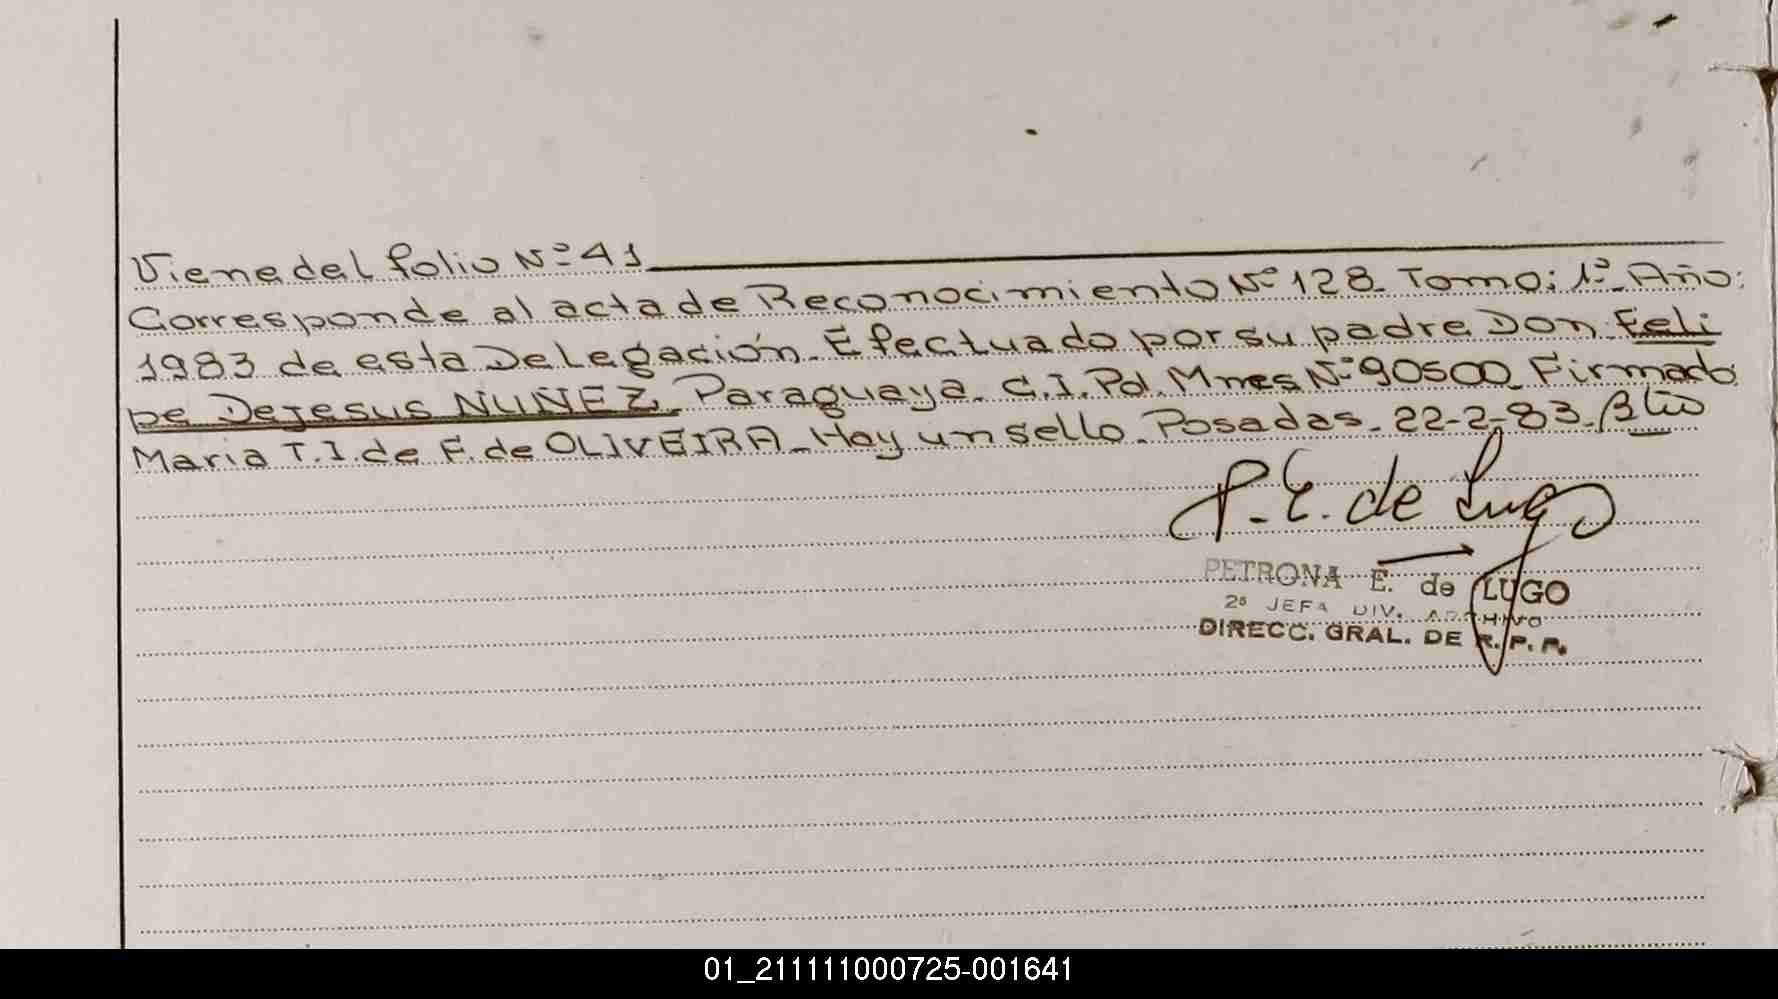 Viene del folio Nº 41
Corresponde al acta de Reconocimiento Nº 128 Tomo: 1º. Año:
1983 de esta Delegación. Efectuado por su padre Don: Feli
pe Dejesus NUÑEZ, Paraguaya. C.I. Pd. Mnes Nº 90500 Firmado
Maria T.I. de F. de OLIVEIRA. Hay un sello. Posadas. 22-2-83.
P. E. de Lugo
PETRONA E. de LUGO
2ª JEFA DIV. ARCHIVO
DIRECC. GRAL. DE R. P. P.
01_211111000725-001641